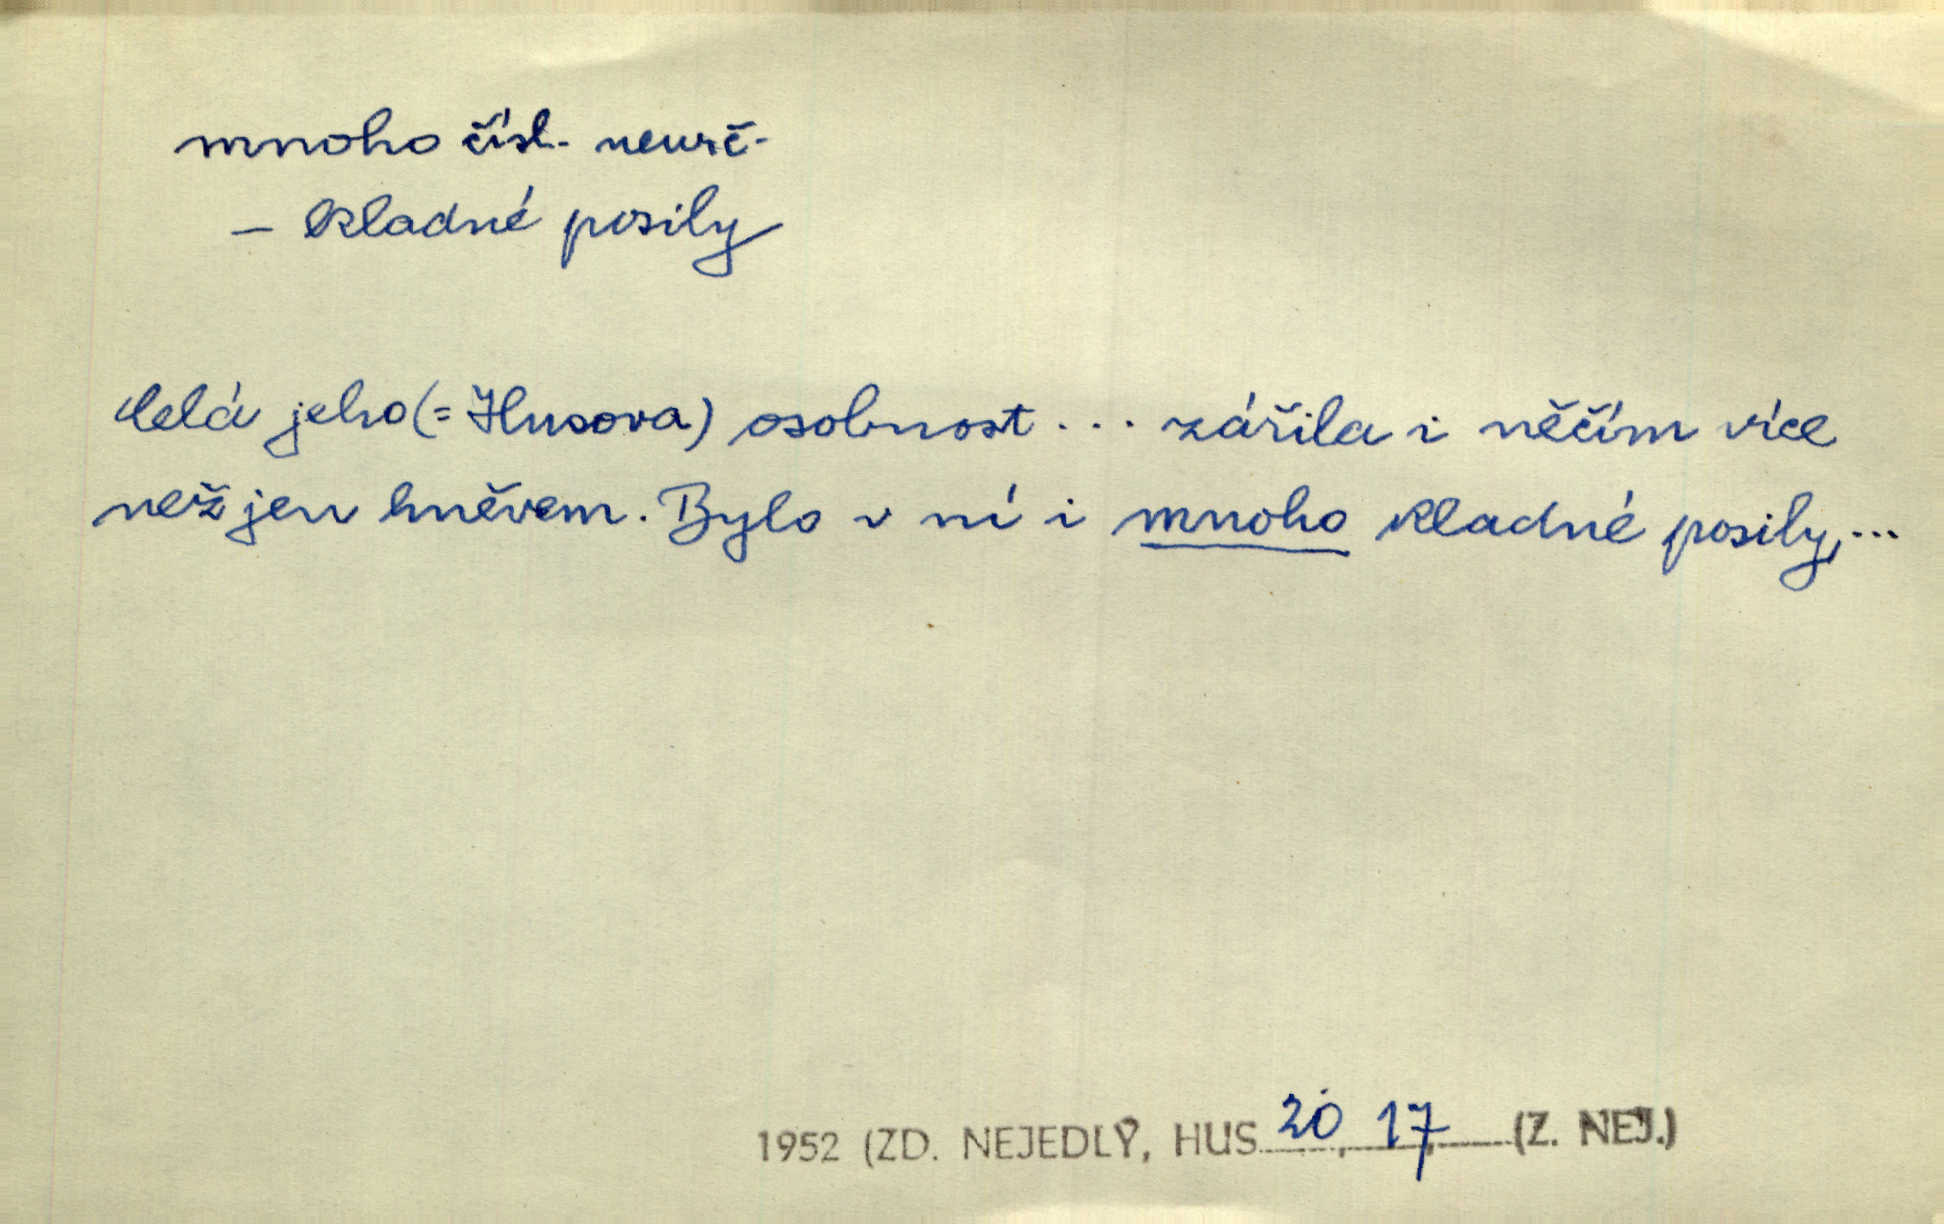 mnoho čísl. neurč.
– kladné posily
Celá jeho (= Husova) osobnost ... zářila i něčím více
než jen hněvem. Bylo v ní i mnoho kladné posily,...
1952 (ZD. NEJEDLÝ, HUS 20, 17, (Z. NEJ.)